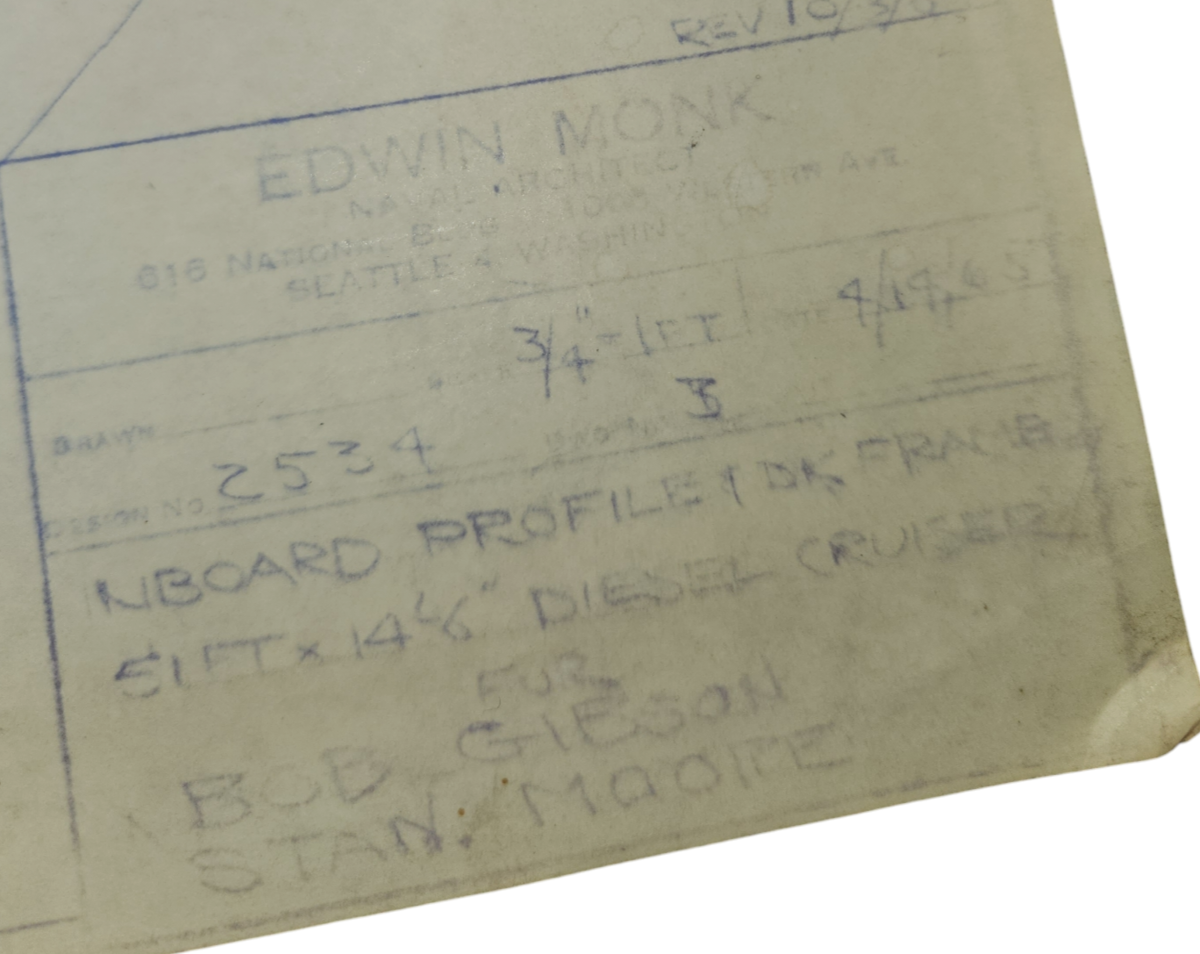 REV 10/3/6
EDWIN MONK
NAVAL ARCHITECT
616 NATIONAL BLDG 1008 WESTERN AVE.
SEATTLE 4 WASHINGTON
3/4" = 1FT DATE 4/14/65
DRAWN
DESIGN NO 2534 DWG NO. 3
INBOARD PROFILE & DK FRAMB
51FT x 14'6" DIESEL CRUISER
FOR
BOB GIBSON
STAN. MOORE